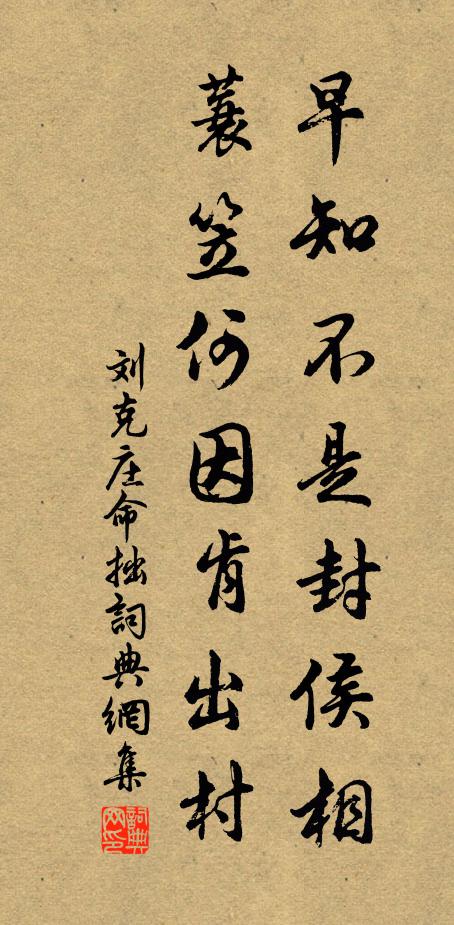 早知不是封侯相
蓑笠何因肯出村
刘克庄命拙詞典網集
詞典网印